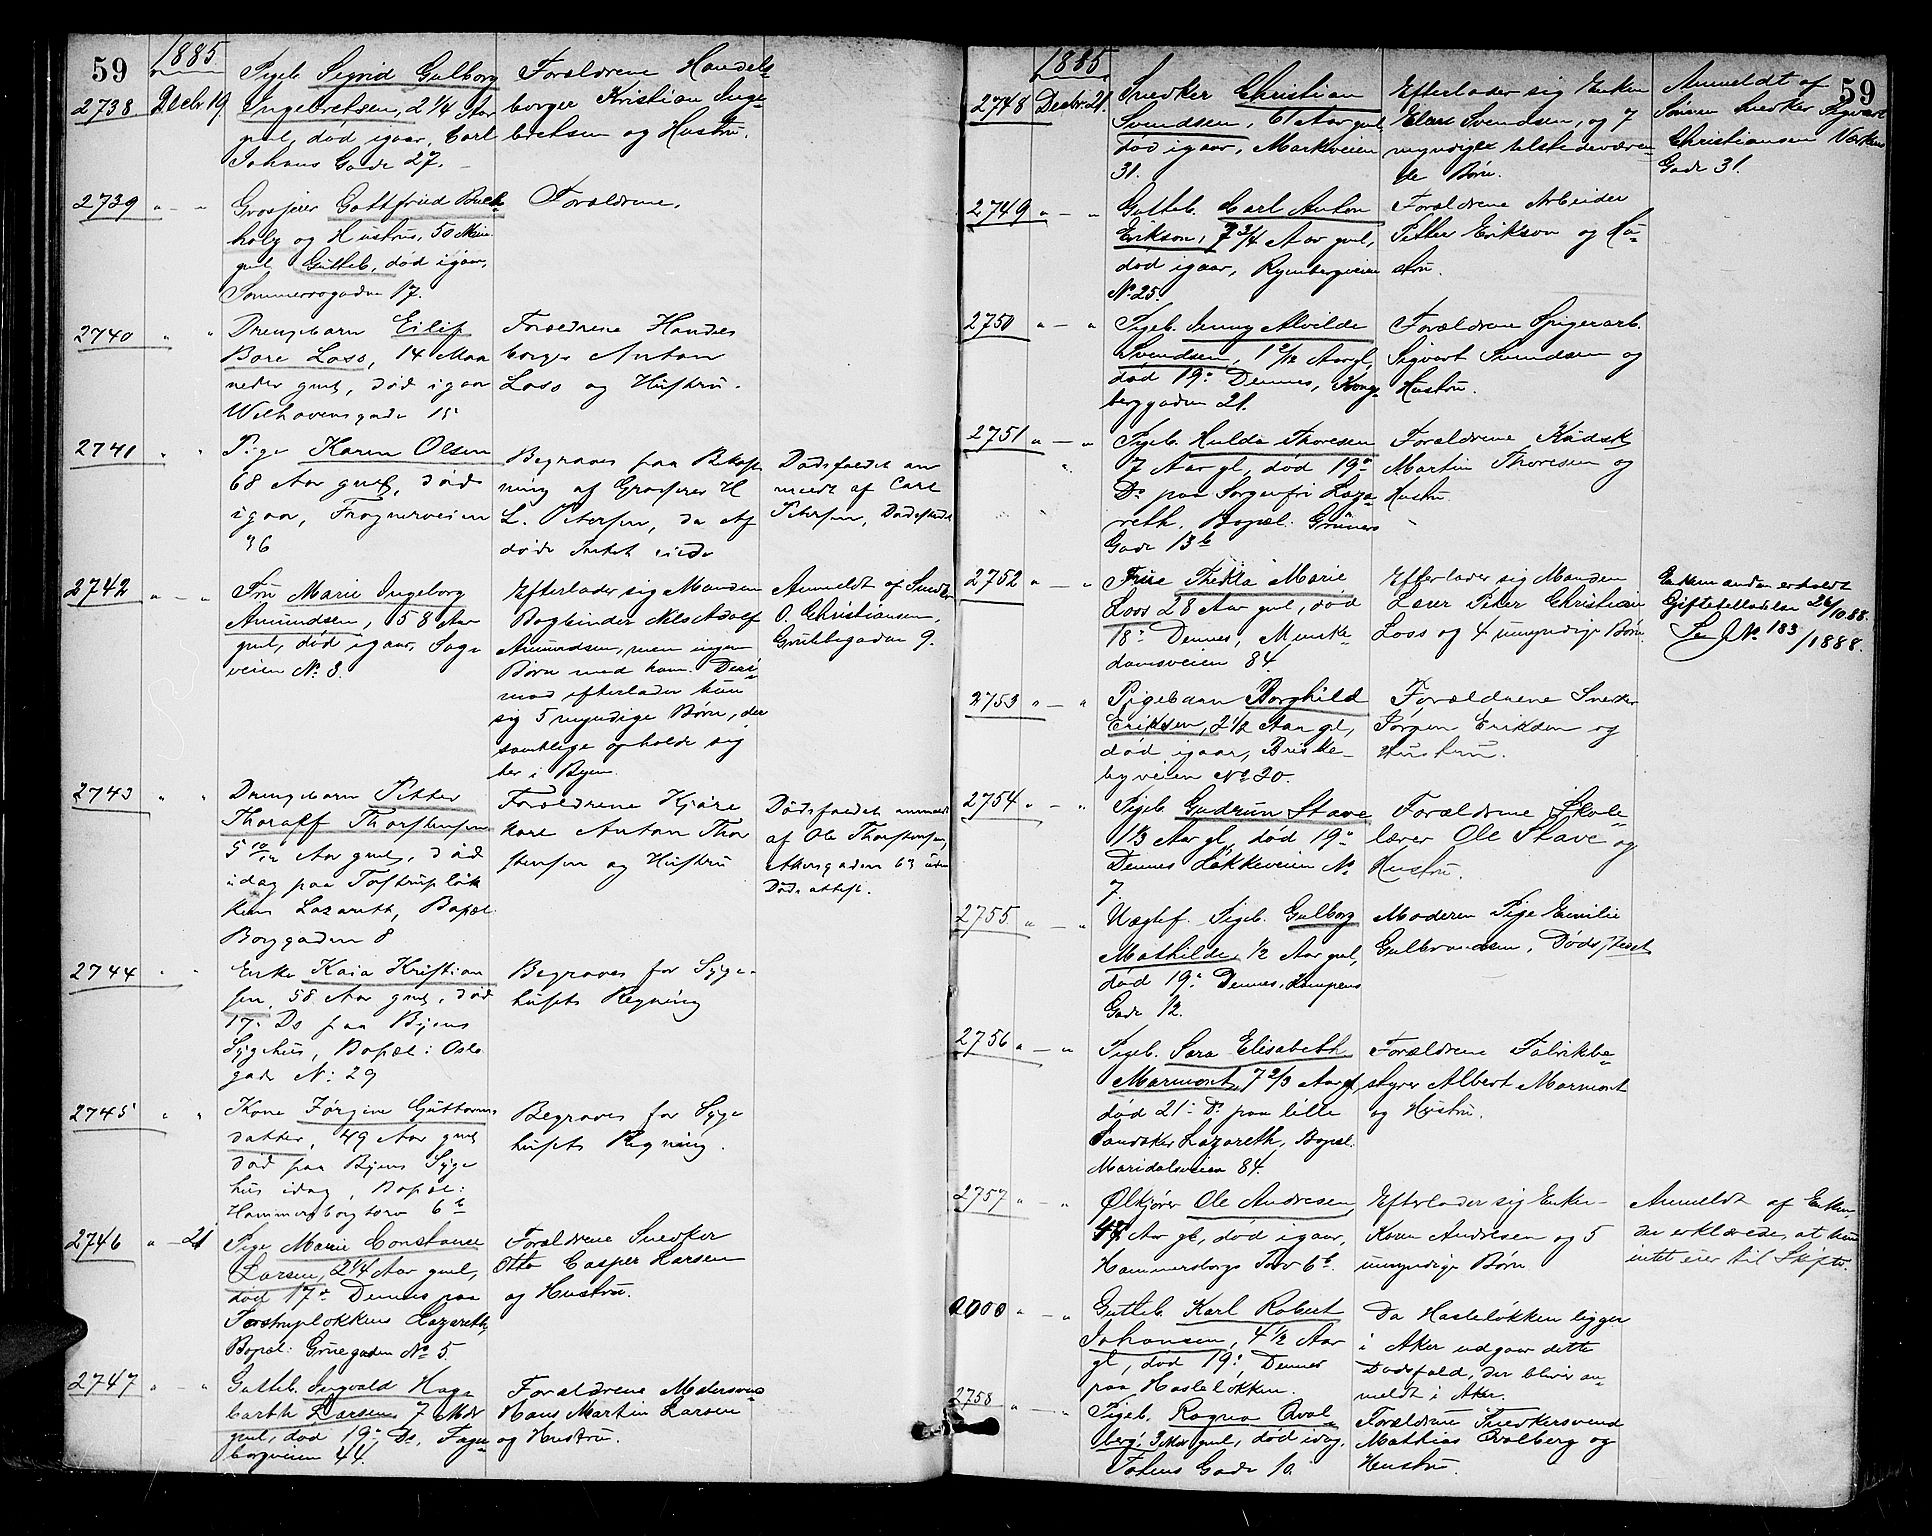 59
1885
2738 Decbr 19.
Pigeb. Sigrid Gulborg
Ingebretsen, 2 1/4 Aar
gml, død igaar, Carl
Johans Gade 27.
Forældrene Handels-
borger Kristian Inge-
bretsen og Hustru.
2739 " — "
Grosserer Gottfried Buch-
holz og Hustrus, 50 Min.
gml Gutteb, død igaar,
Sommerrogaden 17.
Forældrene.
2740 " "
Drengebarn Eilif
Bore Loss, 14 Maa
neder gml, død igaar
Welhavensgade 15
Forældrene Handels
borger Anton
Loss og Hustru.
2741 " "
Pige Karen Olsen
68 Aar gml, død
igaar, Frognerveien
36
Begraves paa Bekost
ning af Grosserer H
L. Petersen, da Af
døde Intet eiede
Dødsfaldet an
meldt af Carl
Petersen, Dødsstedet
2742 " — "
Fru Marie Ingeborg
Amundsen, 58 Aar
gml, død igaar, Sage
veien No 3.
Efterlader sig Manden
Bogbinder Nils Adolf
Amundsen, men ingen
Børn med ham. Deri-
mod efterlader hun
sig 5 myndige Børn, der
samtlige opholde sig
her i Byen.
Anmeldt af Snedker
O. Christiansen,
Grubbegaden 9.
2743 " "
Drengebarn Petter
Thoralf Thorstensen
5 10/12 Aar gml, død
idag paa Toftrupløk
kens Lazareth, Bopæl:
Borggaden 8
Forældrene Kjøre
karl Anton Thor
stensen og Hustru
Dødsfaldet anmeldt
af Ole Thorstensen,
Akersgaden 63 uden
Dødsattest.
2744 " "
Enke Kaia Kristian
sen, 58 Aar gml, død
17: Ds paa Byens
Sygehus, Bopæl: Oslo
gade No: 29
Begraves for Syge-
husets Regning
2745 " "
Kone Jørgine Guttorms
datter, 49 Aar gml
død paa Byens Syge
hus idag, Bopæl:
Hammersborgtorv 6 b
Begraves for Syge
husets Regning.
2746 " — 21
Pige Marie Constance
Larsen, 2 1/4 Aar gml,
død 17de Dennes paa
Tostruplokkens Lazareth,
Bopæl: Gruegaden No 5.
Forældrene Snedker
Otto Casper Larsen
og Hustru.
2747 " — "
Gutteb. Ingvald Hage
barth Larsen, 7 Mdr
gml, død 19: Ds, Fage-
borgveien 44.
Forældrene Malersvend
Hans Martin Larsen
og Hustru.
59
1885
2748 Decbr 21.
Snedker Christian
Svendsen, 61 Aar gml,
død igaar, Markveien
31.
Efterlader sig Enken
Elise Svendsen, og 7
myndige tilstedeværen-
de Børn.
Anmeldt af
Sønnen Snedker Sigvart
Christiansen
Gade 31.
2749 " — "
Gutteb. Carl Anton
Erikson, 7 3/4 Aar gml,
død igaar, Ryenbergveien
No 25.
Forældrene Arbeider
Petter Erikson og Hu-
stru.
2750 " — "
Pigeb. Jenny Alvilde
Svendsen, 1 2/12 Aar gl,
død 19: Dennes, Kongs-
berggaden 21.
Forældrene Spigerarb.
Sigvart Svendsen og
Hustru.
2751 " — "
Pigeb. Hulda Thoresen
7 Aar gl, død 19:
Ds paa Sorgenfri Laza-
reth. Bopæl: Grüners
Gade 13 b
Forældrene
Martin Thoresen og
Hustru.
2752 " — "
Frue Thekla Marie
Loss 28 Aar gml, død
18: Dennes, Munke-
damsveien 84.
Efterlader sig Manden
Læser Peter Christian
Loss og 4 umyndige Børn.
Enkemanden erholdt
Giftetilladelse 26/10 88.
Se J No 183/1888.
2753 " — "
Pigebarn Borghild
Eriksen, 2 1/2 Aar gl,
død igaar, Briske-
byveien No 20.
Forældrene Snedker
Jørgen Eriksen og
Hustru.
2754 " — "
Pigeb. Gudrun Stave
1 1/3 Aar gl, død 19:
Dennes Løkkeveien No
7.
Forældrene Skole-
lærer Ole Stave og
Hustru.
2755 " — "
Uægtef. Pigeb. Gulborg
Mathilde, 1/2 Aar gml,
død 19: Dennes, Kampens
Gade 12.
Moderen Pige Emilie
Gulbrandsen, Dødsstedet
2756 " — "
Pigeb. Sara Elisabeth
Marmont, 7 2/3 Aar gl
død 21: Ds paa lille
Sandaker Lazareth, Bopæl:
Maridalsveien 84.
Forældrene Fabrikbe-
styrer Albert Marmont
og Hustru.
2757 " — "
Ølkjører Ole Andresen,
47 Aar gl, død igaar,
Hammersborgs Torv 6 b.
Efterlader sig Enken
Karen Andresen og 5
umyndige Børn
Anmeldt af Enken,
der erklærede, at hun
intet eier til Skifte.
0000 " — "
Gutteb. Karl Robert
Johansen, 4 1/2 Aar
gl, død 19: Dennes
paa Hasleløkken.
Da Hasleløkken ligger
i Aker udgaar dette
Dødsfald, der bliver an-
meldt i Aker.
2758 " — "
Pigeb. Ragna Qval-
berg, 3 Mdr gml, død idag,
Toftens Gade 10.
Forældrene Snedkersvend
Mathias Qvalberg og
Hustru.